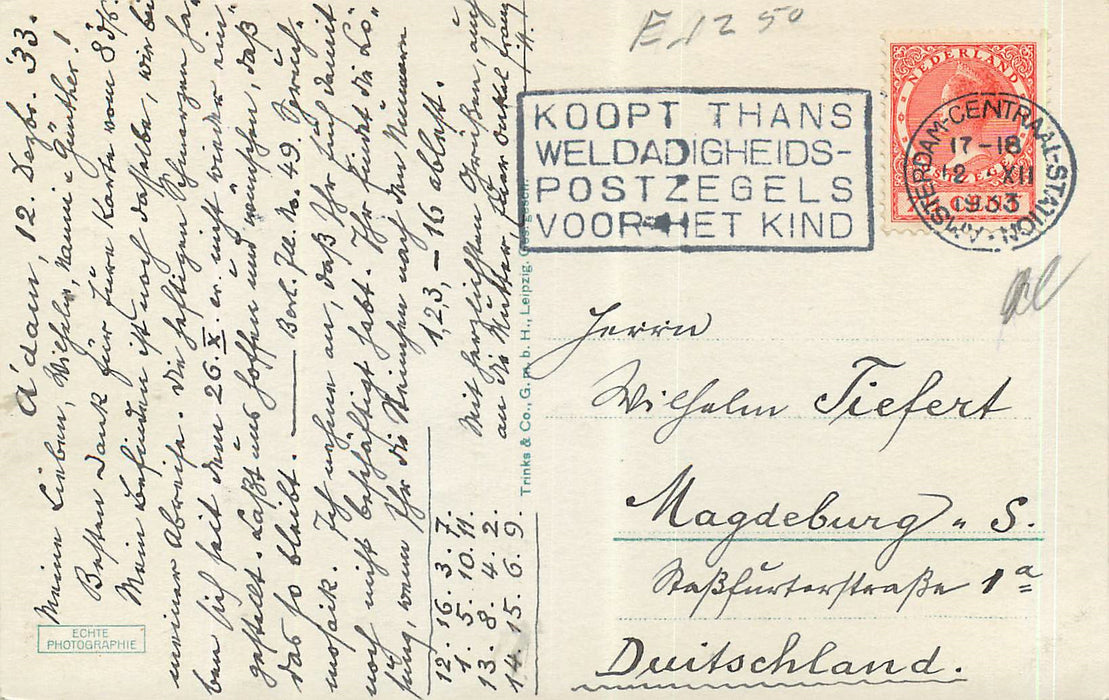 A'dam, 12. Dezbr. '33.
Meine Lieben, Wilhelm, Nanni u. Günther!
Besten Dank für Eure Karte vom 8. ds.
Mein Befinden ist noch dasselbe, wie bei
meiner Abreise. Die heftigen Schmerzen ha-
ben sich seit dem 26. X. er. nicht wieder ein-
gestellt. Laßt uns hoffen und wünschen, daß
das so bleibt. — Berl. Ill. No. 49. Sprüch.
mosaik. Ich nehme an, daß Ihr Euch damit
noch nicht beschäftigt habt. Ihr findet die Lö-
sung, wenn Ihr die Steinchen nach den Nummern
1, 2, 3, — 16 ablest.
12. 16. 3. 7.
1. 5. 10. 11.
13. 8. 4. 2.
14. 15. 6. 9.
Mit herzlichsten Grüßen, auch
an die Mutter, Euer Onkel Franz
ECHTE
PHOTOGRAPHIE
Trinks & Co., G. m. b. H., Leipzig.
E 12 50
KOOPT THANS
WELDADIGHEIDS-
POSTZEGELS
VOOR HET KIND
NEDERLAND
CENT
AMSTERDAM-CENTRAAL-STATION
17-18
12 XII
1933
Herrn
Wilhelm Tiefert
Magdeburg - S.
Staßfurterstraße 1a
Duitschland.